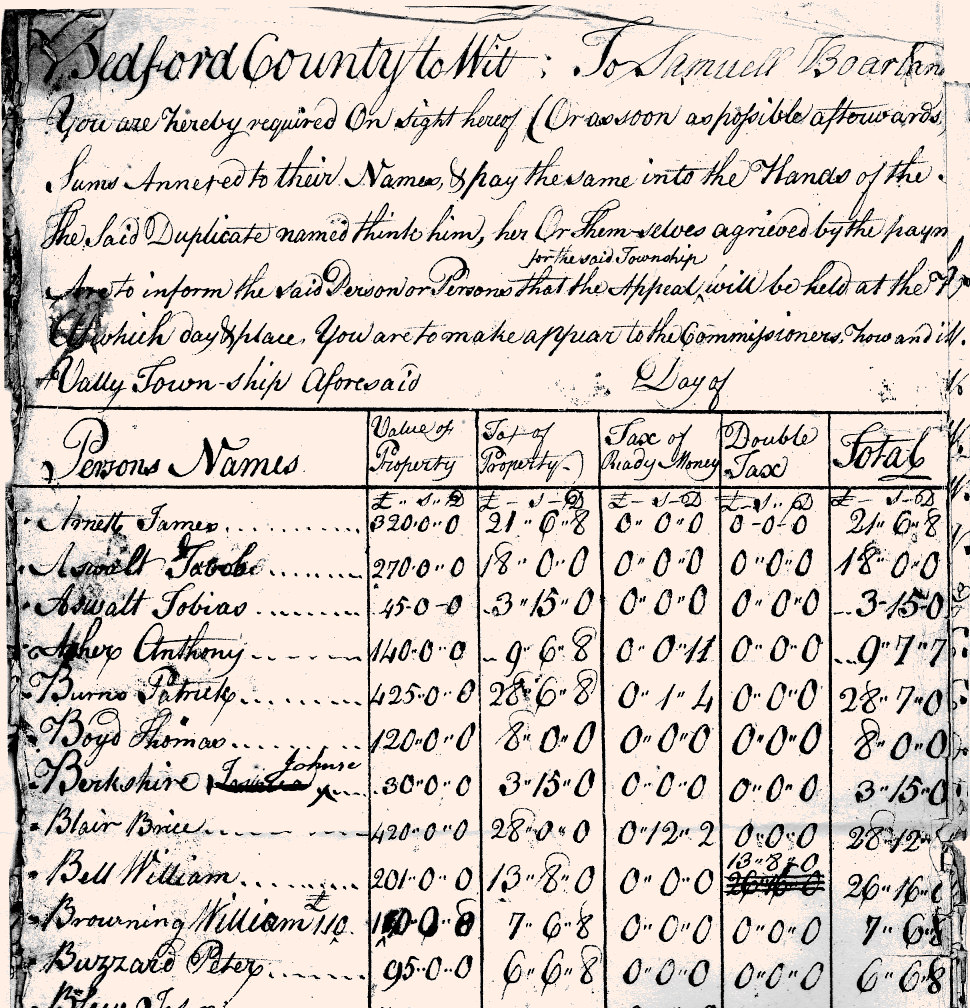 Bedford County to Wit : To Samuell
You are hereby required On sight hereof (Or as soon as possible afterwards,
Sums Annexed to their Names, & pay the same into the Hands of the
The Said Duplicate named think him, her Or Them-selves agrieved by the paym
for the said Township
Are to inform the said Person or Persons that the Appeal will be held at the
At which day & place, You are to make appear to the Commissioners, how and
Vally Town-ship Aforesaid Day of
Persons Names Value of Property Tax of Property Tax of Ready Money Double Tax Total
£ " S " D £ - S - D £ - S - D £ - S - D £ - S - D
Arnett James 320 " 0 " 0 21 " 6 " 8 0 " 0 " 0 0 - 0 - 0 21 " 6 " 8
Aswalt Jacob 270 " 0 " 0 18 " 0 " 0 0 " 0 " 0 0 " 0 " 0 18 " 0 " 0
Aswalt Tobias 45 - 0 - 0 3 " 15 " 0 0 " 0 " 0 0 " 0 " 0 3 - 15 - 0
Asher Anthony 140 " 0 " 0 9 " 6 " 8 0 " 0 " 11 0 " 0 " 0 9 " 7 " 7
Burns Patrick 425 " 0 " 0 28 " 6 " 8 0 " 1 " 4 0 " 0 " 0 28 " 7 " 0
Boyd Thomas 120 " 0 " 0 8 " 0 " 0 0 " 0 " 0 0 " 0 " 0 8 " 0 " 0
Berkshire 30 " 0 " 0 3 " 15 " 0 0 " 0 " 0 0 " 0 " 0 3 " 15 " 0
Blair Brice 420 " 0 " 0 28 " 0 " 0 0 " 12 " 2 0 " 0 " 0 28 " 12 "
13 " 8 " 0
Bell William 201 " 0 " 0 13 " 8 " 0 0 " 0 " 0 26 " 16 " 0 26 " 16 "
Browning William £110 7 " 6 " 8 0 " 0 " 0 0 " 0 " 0 7 " 6 " 8
Buzzard Peter 95 " 0 " 0 6 " 6 " 8 0 " 0 " 0 0 " 0 " 0 6 " 6 " 8